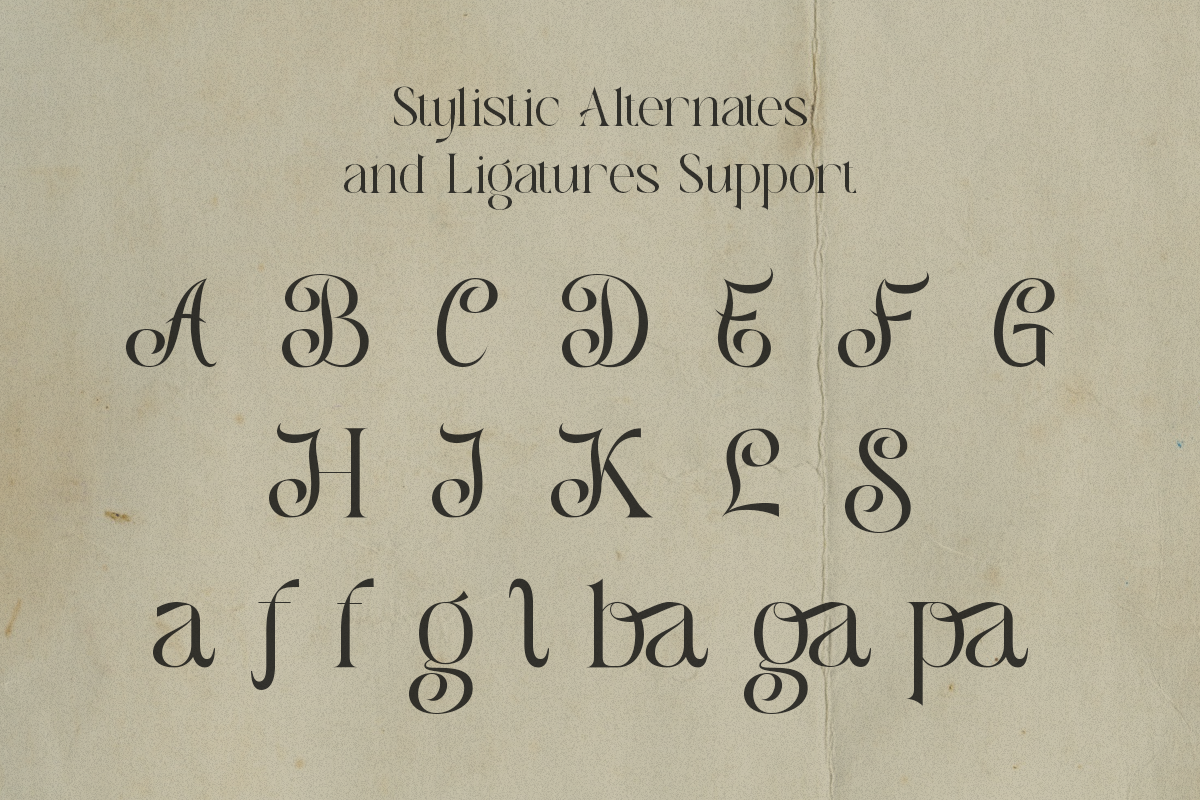 Stylistic Alternates
and Ligatures Support
A B C D E F G
H I K L S
a f f g l ba ga pa